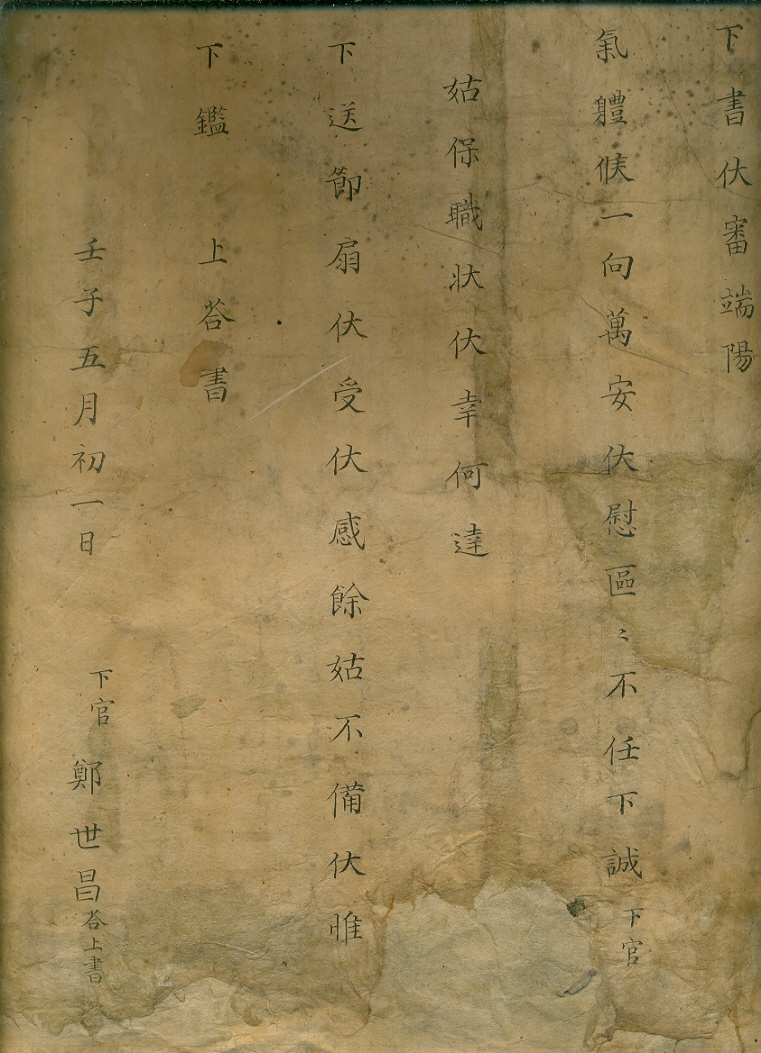 下書伏審端陽
氣體候一向萬安伏慰區〻不任下誠下官
姑保職狀伏幸何達
下送節扇伏受伏感餘姑不備伏惟
下鑑 上答書
壬子五月初一日 下官 鄭世昌答上書